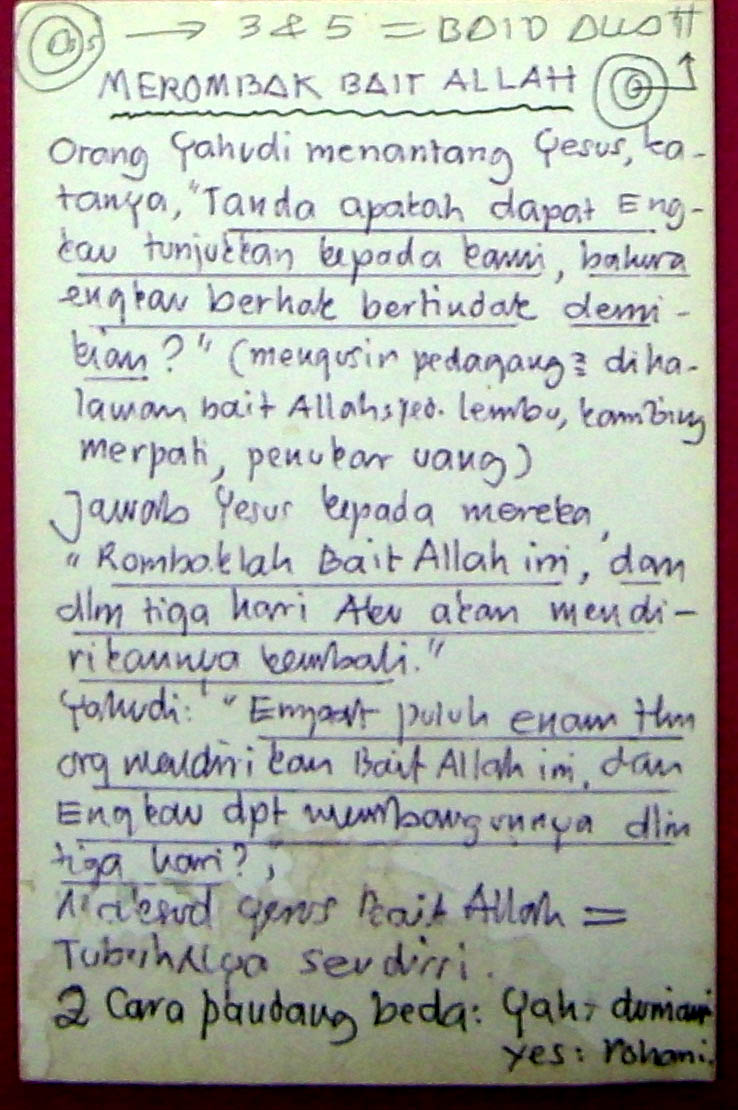 → 3 & 5 = BAID ALLAH
MEROMBAK BAIT ALLAH
Orang Yahudi menantang Yesus, ka-
tanya, "Tanda apakah dapat Eng-
kau tunjukkan kepada kami, bahwa
engkau berhak bertindak demi-
kian?" (mengusir pedagang² diha-
laman bait Allah, ped. lembu, kambing
merpati, penukar uang)
Jawab Yesus kepada mereka,
"Rombaklah Bait Allah ini, dan
dlm tiga hari Aku akan mendi-
rikannya kembali."
Yahudi: "Empat puluh enam thn
org mendirikan Bait Allah ini, dan
Engkau dpt membangunnya dlm
tiga hari?,"
Maksud Yesus Bait Allah =
TubuhNya sendiri.
2 Cara pandang beda: Yah: duniawi
yes: rohani.